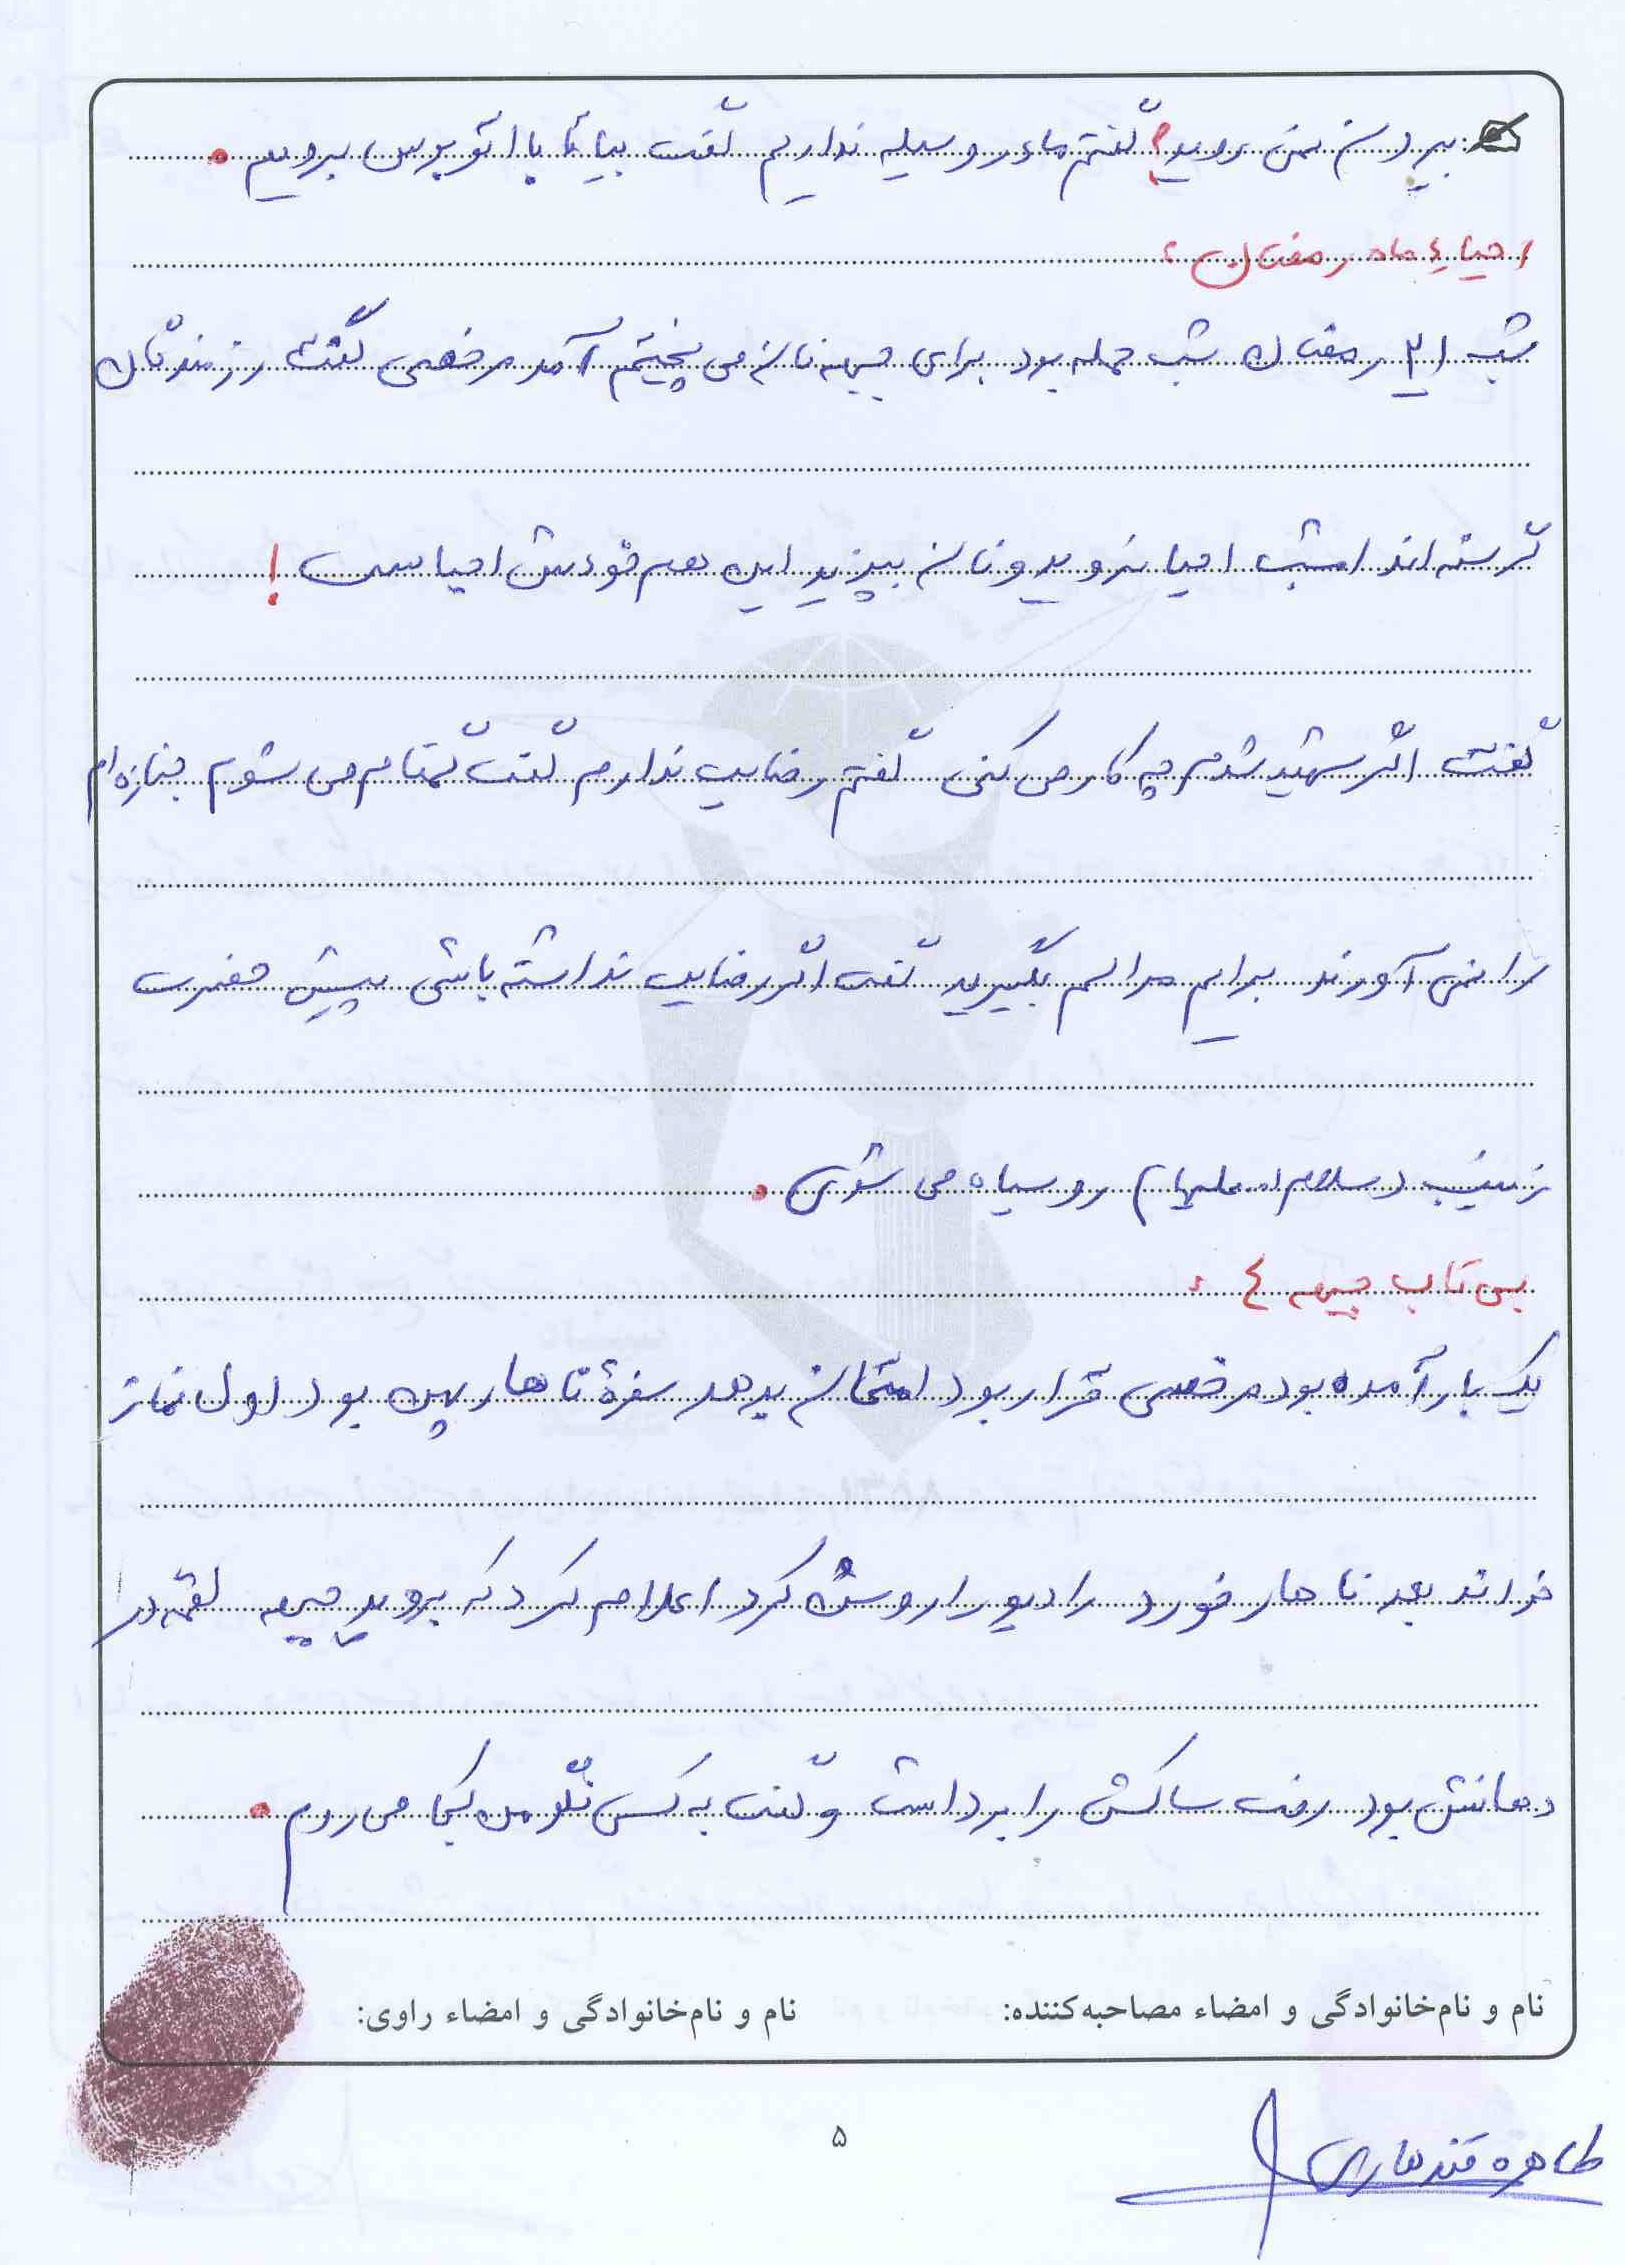 بیرون نمی روید؟ گفتم مادر وسیله نداریم گفت بیا تا با اتوبوس برویم.
احیاء ماه رمضان:
شب ۲۱ رمضان شب حمله بود برای جبهه نان می پختیم آمد مرخصی گفت رزمندگان
گرسنه اند امشب احیا نروید و نان بپزید این هم خودش احیاست!
گفت اگر شهید شدم چه کار می کنی گفتم رضایت ندارم گفت گمنام می شوم جنازه ام
را نمی آورند برایم مراسم بگیرید گفت اگر رضایت نداشته باشی پیش حضرت
زینب (سلام ا... علیها) رو سیاه می شوی.
بی تاب جبهه:
یک بار آمده بود مرخصی قرار بود امتحان بدهد سفرهٔ ناهار پهن بود اول نماز
خواند بعد ناهار خورد رادیو را روشن کرد اعلام کرد که بروید جبهه لقمه در
دهانش بود رفت ساکش را برداشت و گفت به کسی نگو من کجا می روم.
نام و نام‌خانوادگی و امضاء مصاحبه‌کننده:
نام و نام‌خانوادگی و امضاء راوی:
طاهره قندهاری
۵